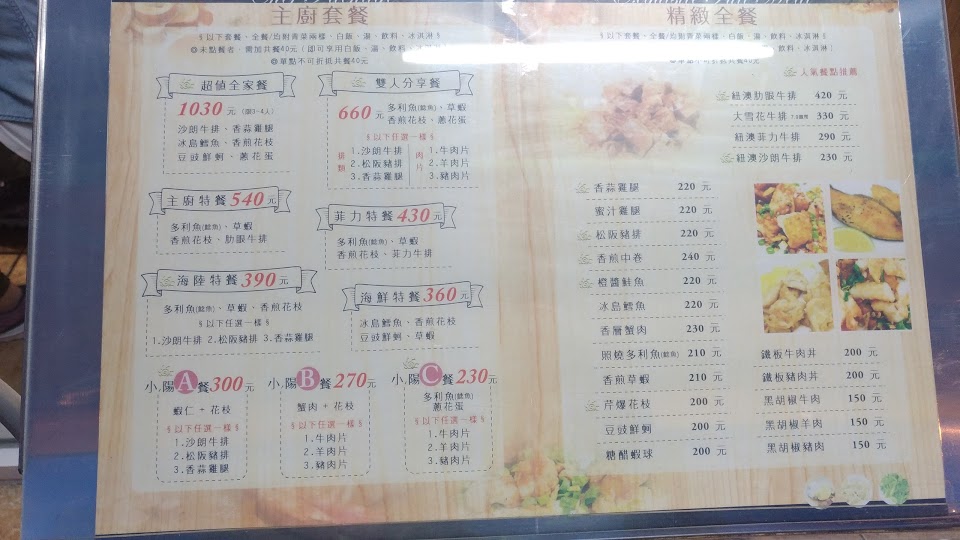 主廚套餐
§以下套餐、全餐/均附青菜兩樣、白飯、湯、飲料、冰淇淋§
◎未點餐者、需加共餐40元(即可享用白飯、湯、飲料、冰淇淋)
◎單點不可折抵共餐40元
超值全家餐
1030元(限3~4人)
沙朗牛排、香蒜雞腿
冰島鱈魚、香煎花枝
豆豉鮮蚵、蔥花蛋
雙人分享餐
660元 多利魚(鯰魚)、草蝦
香煎花枝、蔥花蛋
§以下任選一樣§
排類
1.沙朗牛排
2.松阪豬排
3.香蒜雞腿
肉片
1.牛肉片
2.羊肉片
3.豬肉片
主廚特餐540元
多利魚(鯰魚)、草蝦
香煎花枝、肋眼牛排
菲力特餐430元
多利魚(鯰魚)、草蝦
香煎花枝、菲力牛排
海陸特餐390元
多利魚(鯰魚)、草蝦、香煎花枝
§以下任選一樣§
1.沙朗牛排 2.松阪豬排 3.香蒜雞腿
海鮮特餐360元
冰島鱈魚、香煎花枝
豆豉鮮蚵、草蝦
小陽A餐300元
蝦仁+花枝
§以下任選一樣§
1.沙朗牛排
2.松阪豬排
3.香蒜雞腿
小陽B餐270元
蟹肉+花枝
§以下任選一樣§
1.牛肉片
2.羊肉片
3.豬肉片
小陽C餐230元
多利魚(鯰魚)
蔥花蛋
§以下任選一樣§
1.牛肉片
2.羊肉片
3.豬肉片
精緻全餐
§以下套餐、全餐/均附青菜兩樣、白飯、湯、飲料、冰淇淋§
◎單點不可折抵共餐40元
人氣餐點推薦
紐澳肋眼牛排 420 元
大雪花牛排 330 元
紐澳菲力牛排 290 元
紐澳沙朗牛排 230 元
香蒜雞腿 220 元
蜜汁雞腿 220 元
松阪豬排 220 元
香煎中卷 240 元
橙醬鮭魚 220 元
冰島鱈魚 220 元
香層蟹肉 230 元
照燒多利魚(鯰魚) 210 元
香煎草蝦 210 元
芹爆花枝 200 元
豆豉鮮蚵 200 元
糖醋蝦球 200 元
鐵板牛肉丼 200 元
鐵板豬肉丼 200 元
黑胡椒牛肉 150 元
黑胡椒羊肉 150 元
黑胡椒豬肉 150 元